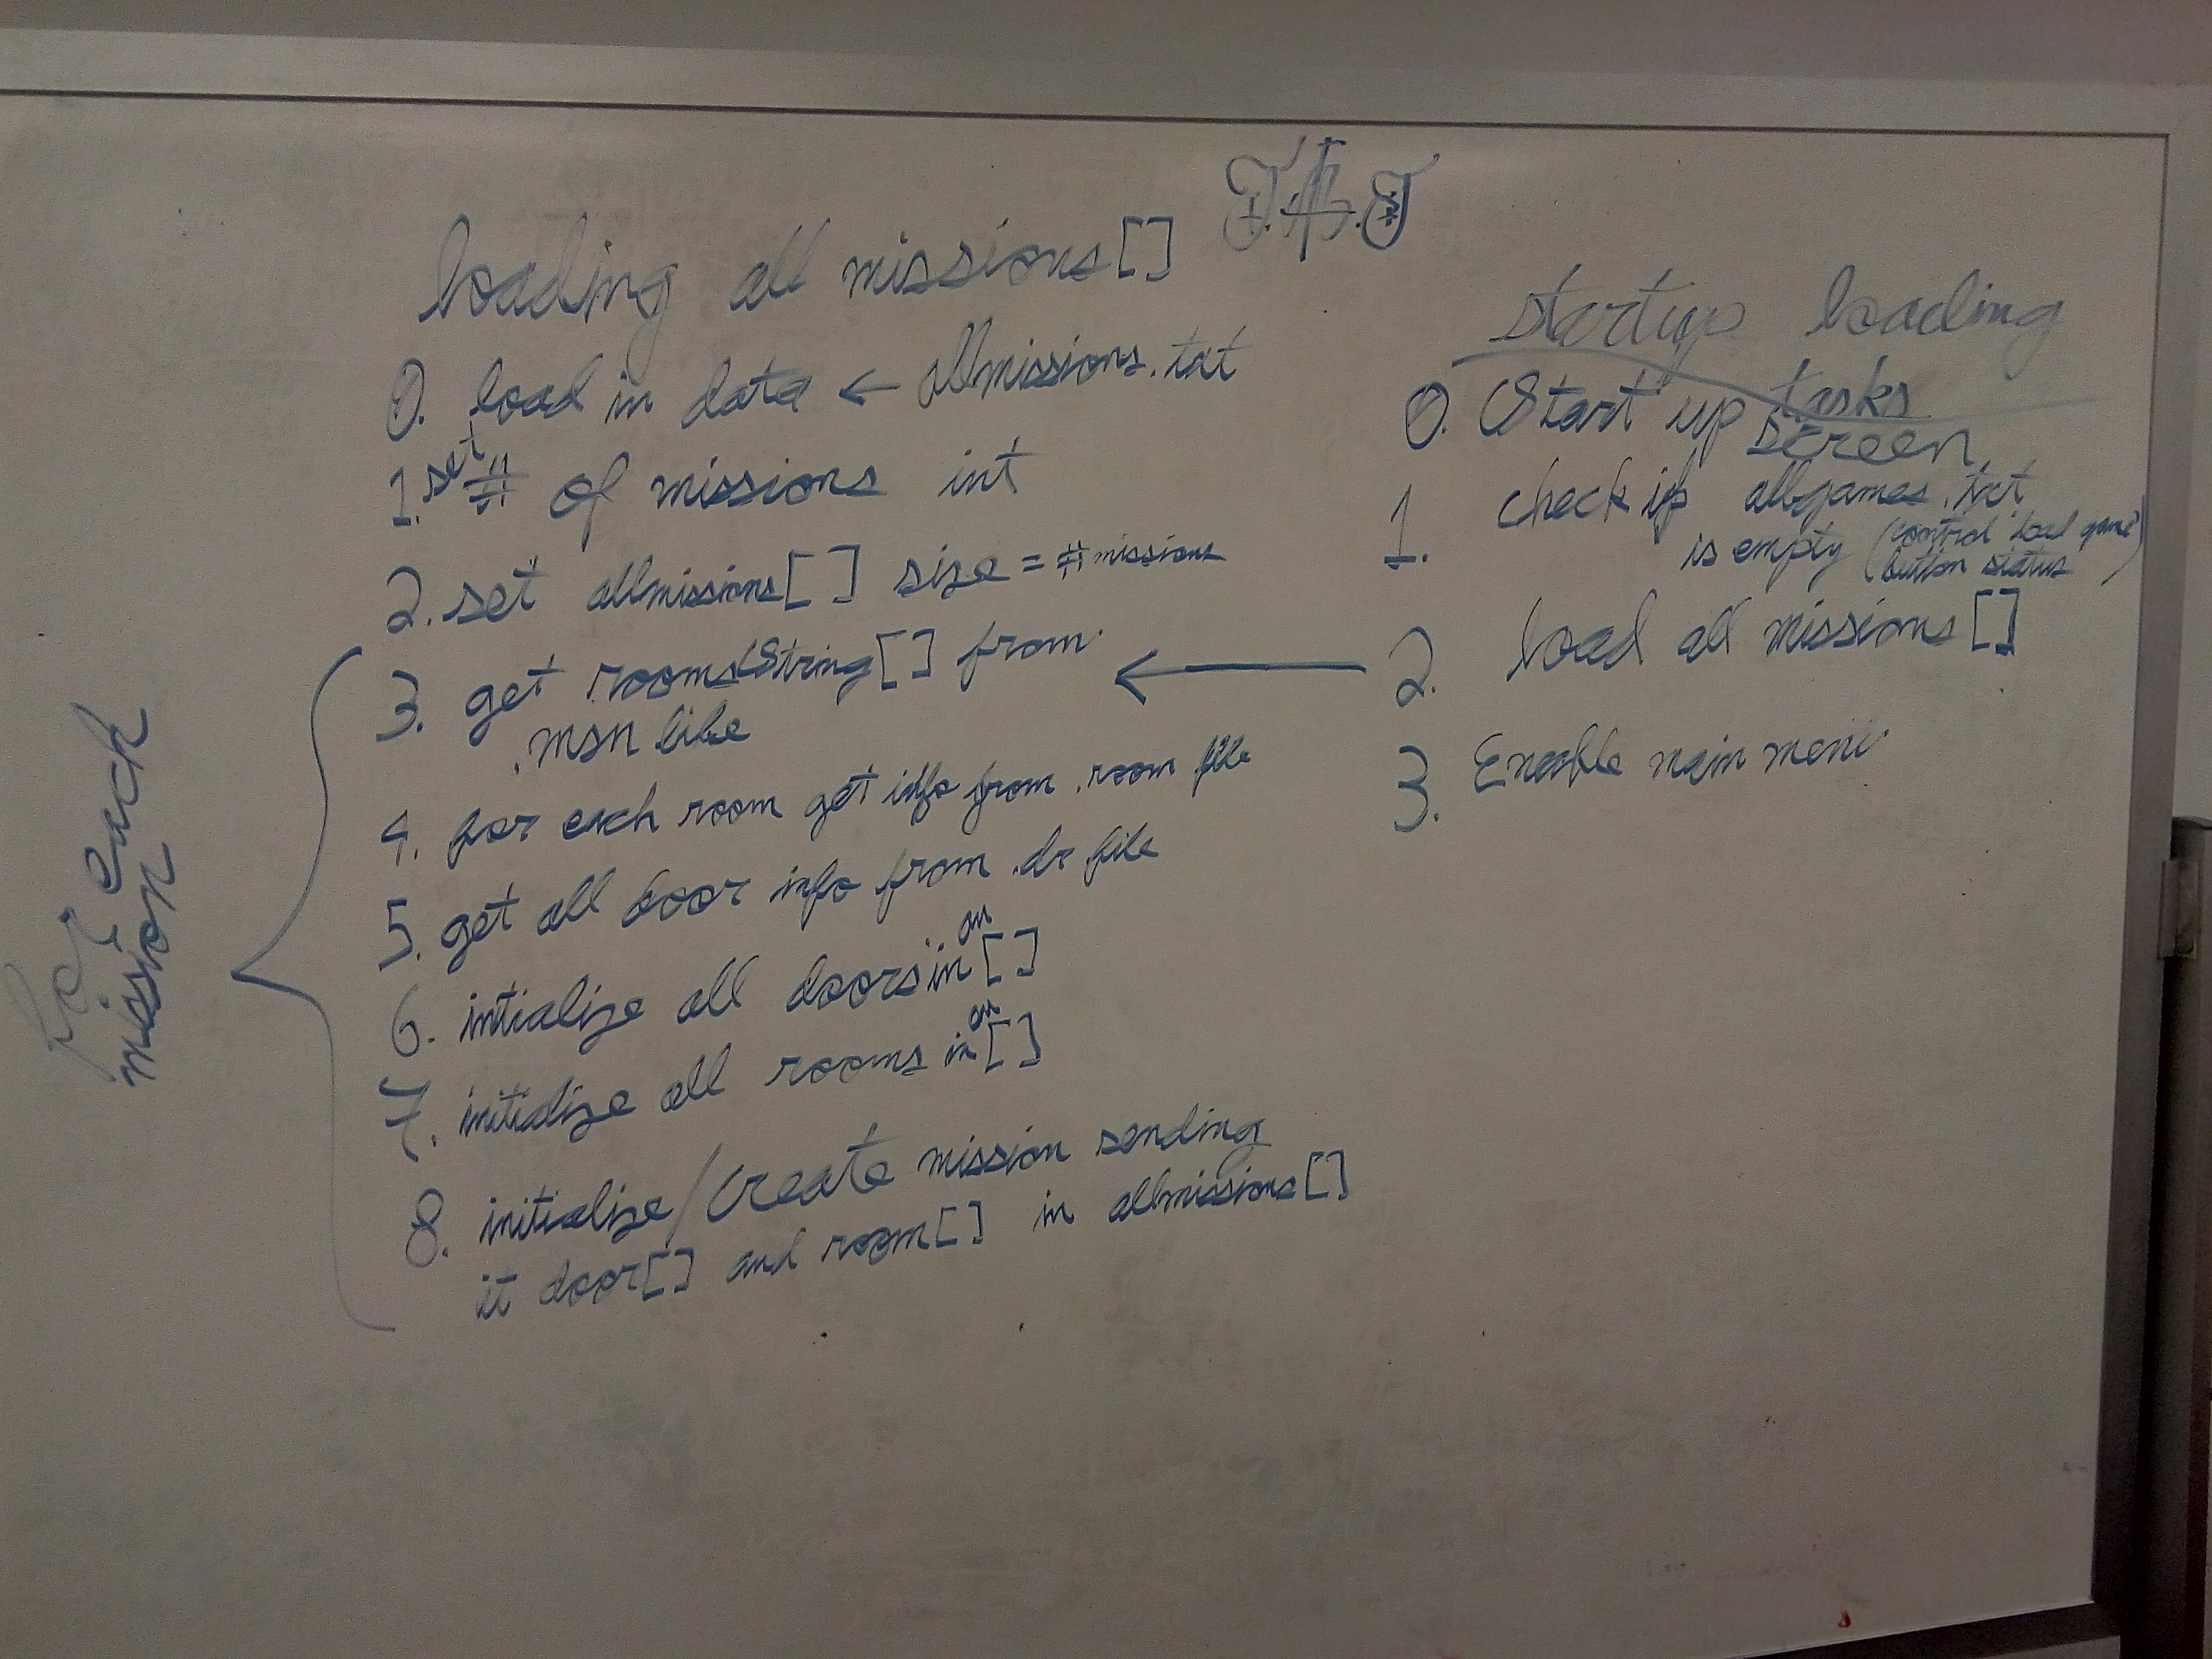 loading all missions[]
0. load in data ← allmissions.txt
1. set # of missions int
2. set allmissions[] size = # missions
3. get rooms String[] from
.msn file
4. for each room get info from .room file
5. get all door info from .dr file
6. intialize all doors in an []
7. initialize all rooms in an []
8. initialize/Create mission sending
it door[] and room[] in allmissions[]
for each
mission
startup loading
tasks
0. Start up screen
1. check if allgames.txt
is empty (control "load game"
button status)
2. load all missions[]
3. Enable main menu